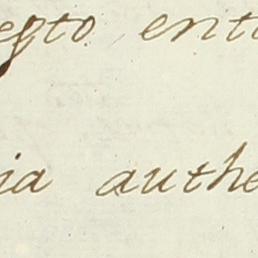 egto ent
ia authe